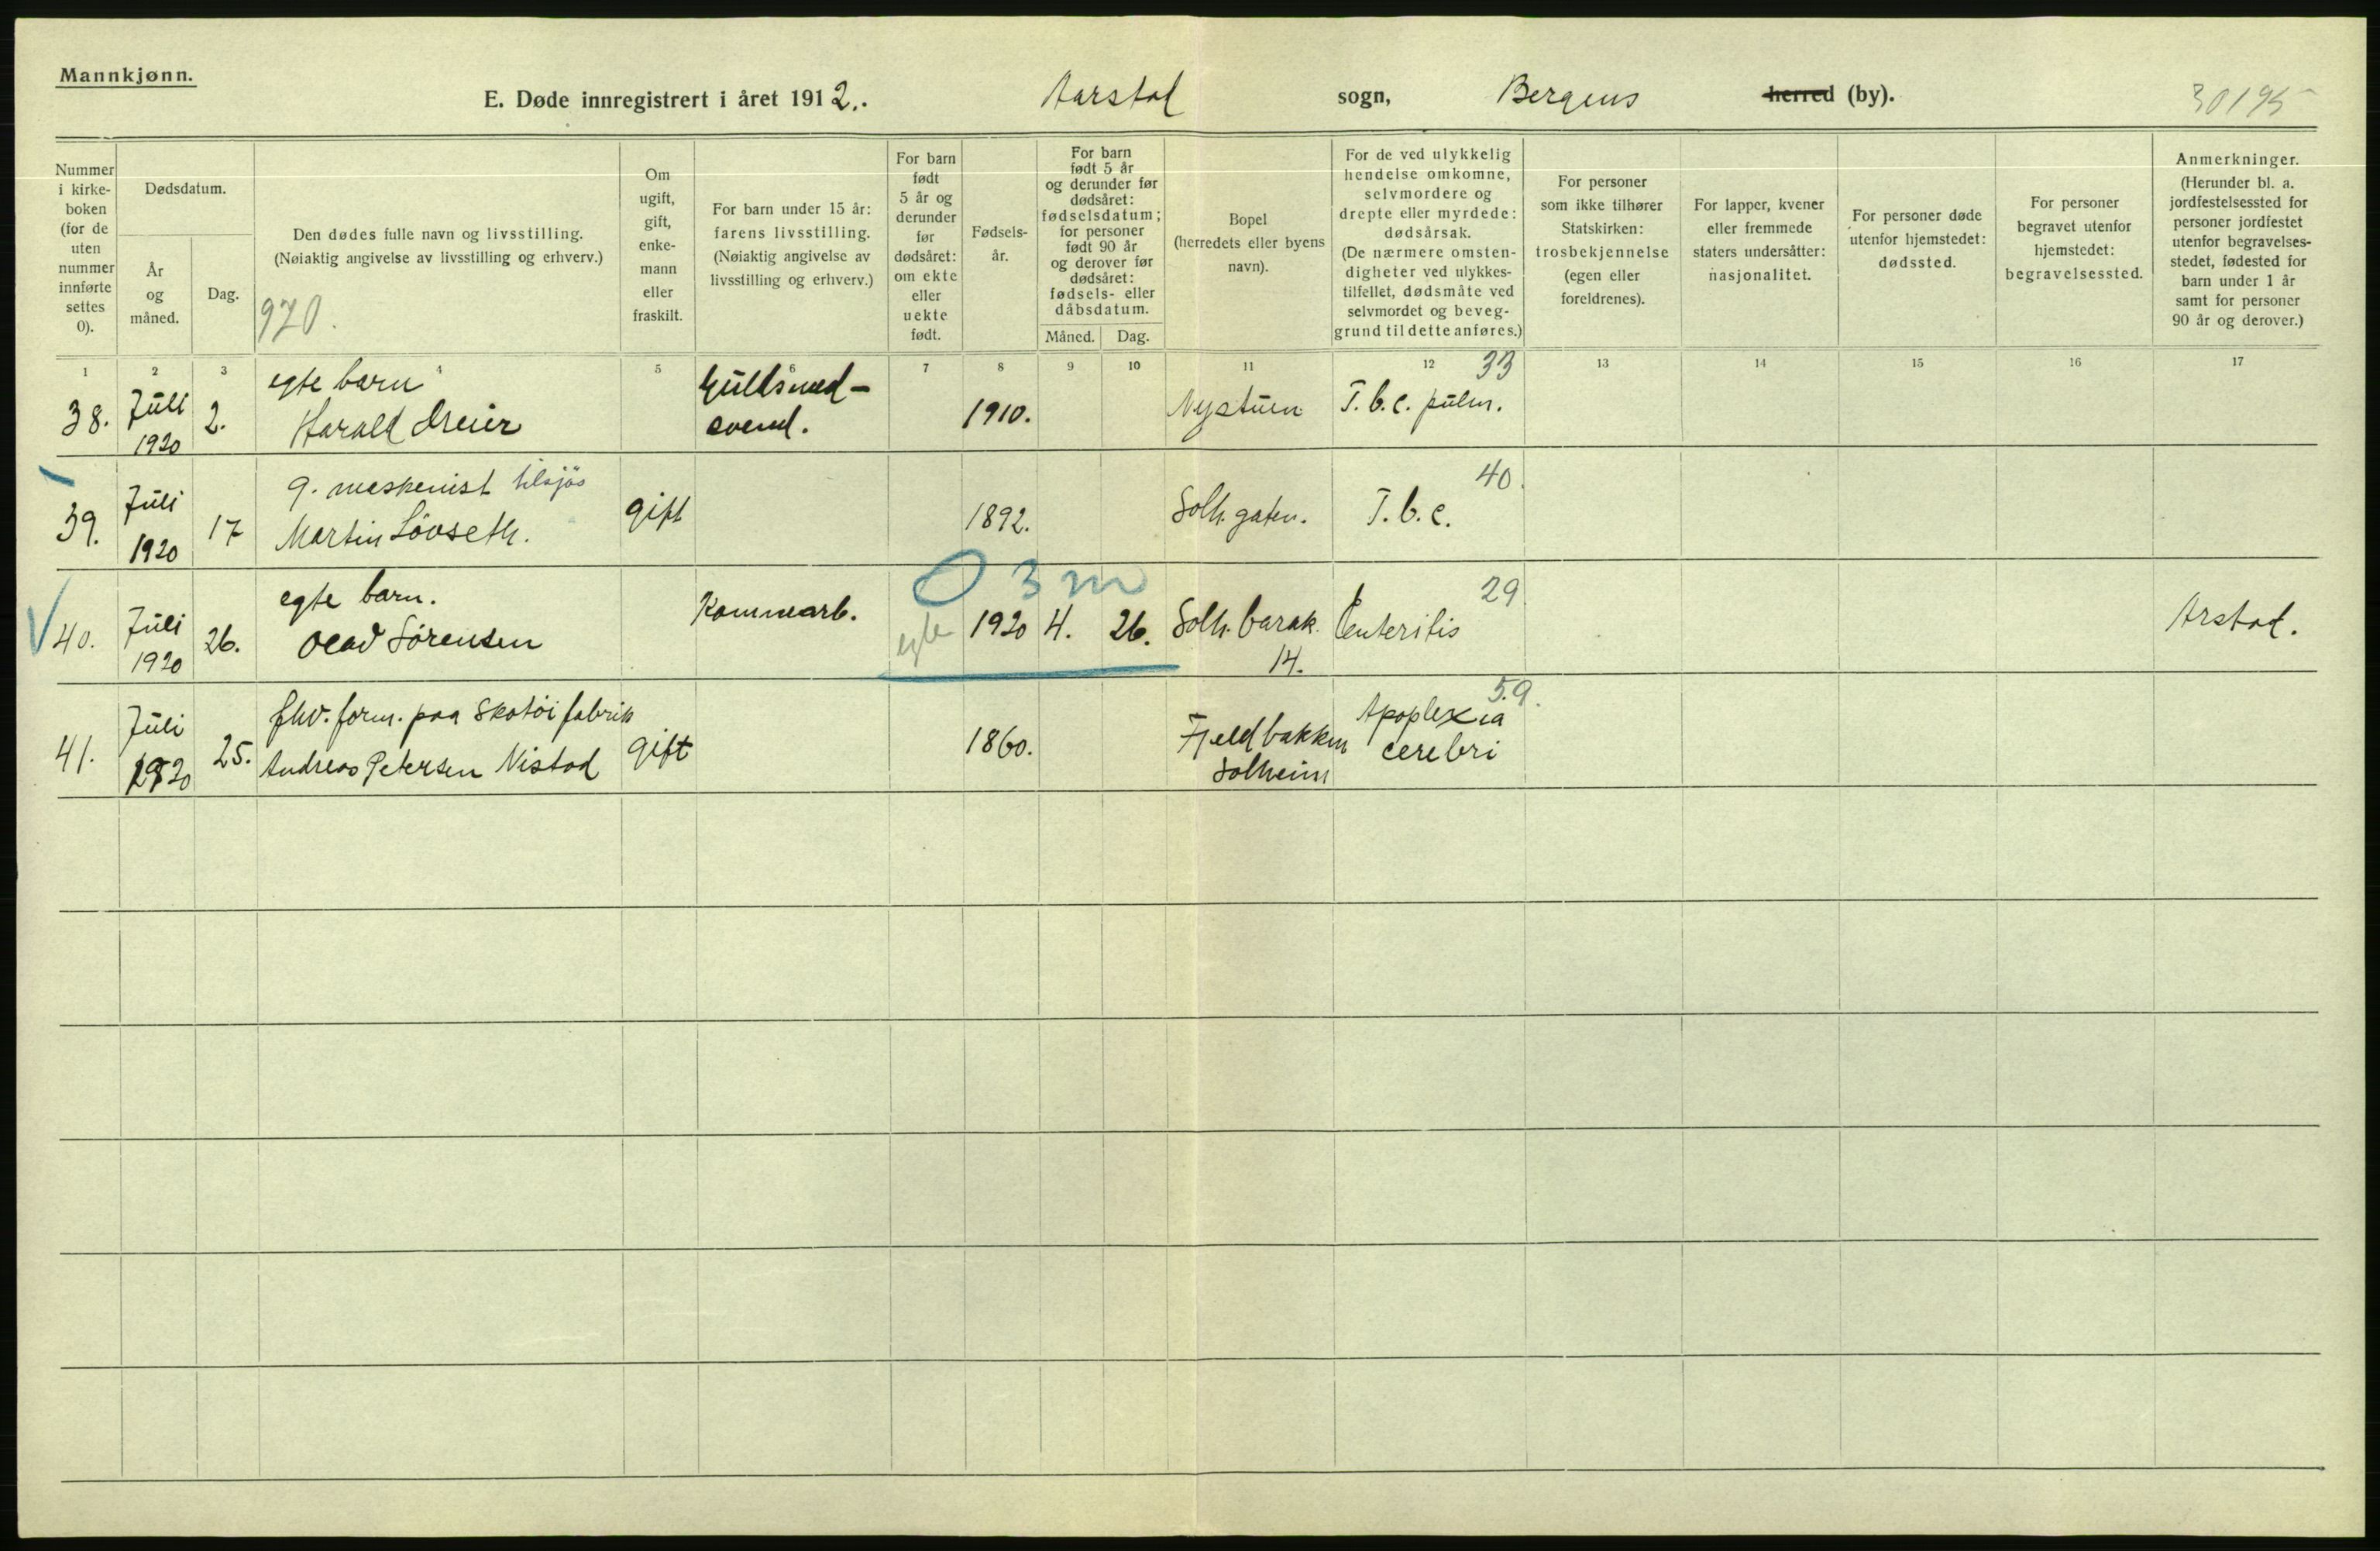 Mannkjønn.
E. Døde innregistrert i året 1912.. Aarstad sogn, Bergens herred (by). 30195
Nummer i kirke- boken (for de uten nummer innførte settes 0).
Dødsdatum.
År og måned.
Dag.
Den dødes fulle navn og livsstilling.
(Nøiaktig angivelse av livsstilling og erhverv.)
920.
Om ugift, gift, enke- mann eller fraskilt.
For barn under 15 år: farens livsstilling. (Nøiaktig angivelse av livsstilling og erhverv.)
For barn født 5 år og derunder før dødsåret: om ekte eller uekte født.
Fødsels- år.
For barn født 5 år og derunder før dødsåret: fødselsdatum; for personer født 90 år og derover før dødsåret: fødsels- eller dåbsdatum.
Måned. Dag.
Bopel (herredets eller byens navn).
For de ved ulykkelig hendelse omkomne, selvmordere og drepte eller myrdede: dødsårsak. (De nærmere omsten- digheter ved ulykkes- tilfellet, dødsmåte ved selvmordet og beveg- grund til dette anføres.)
For personer som ikke tilhører Statskirken: trosbekjennelse (egen eller foreldrenes).
For lapper, kvener eller fremmede staters undersåtter: nasjonalitet.
For personer døde utenfor hjemstedet: dødssted.
For personer begravet utenfor hjemstedet: begravelsessted.
Anmerkninger. (Herunder bl. a. jordfestelsessted for personer jordfestet utenfor begravelses- stedet, fødested for barn under 1 år samt for personer 90 år og derover.)
1 2 3 4 5 6 7 8 9 10 11 12 13 14 15 16 17
egte barn Gullsmed- 33
38. Juli 2. Harald Dreier svend. 1910. Nystuen T.b.c. pulm.
1920
g. maskenist tilsjøs 40.
39. Juli 17 Martin Lövseth. gift 1892. Solh. gaten. T.b.c.
1920
0 3 m
egte barn. Kommearb. 29
40. Juli 26. Olav Sörensen egte 1920 4. 26. Solh. barak. Enteritis Arstad.
1920 14.
fhv. form. paa Skotöifabrik 59.
41. Juli 25. Andreas Petersen Nistad gift 1860. Fjeldbakken Apoplexia
1920 Solheim cerebri